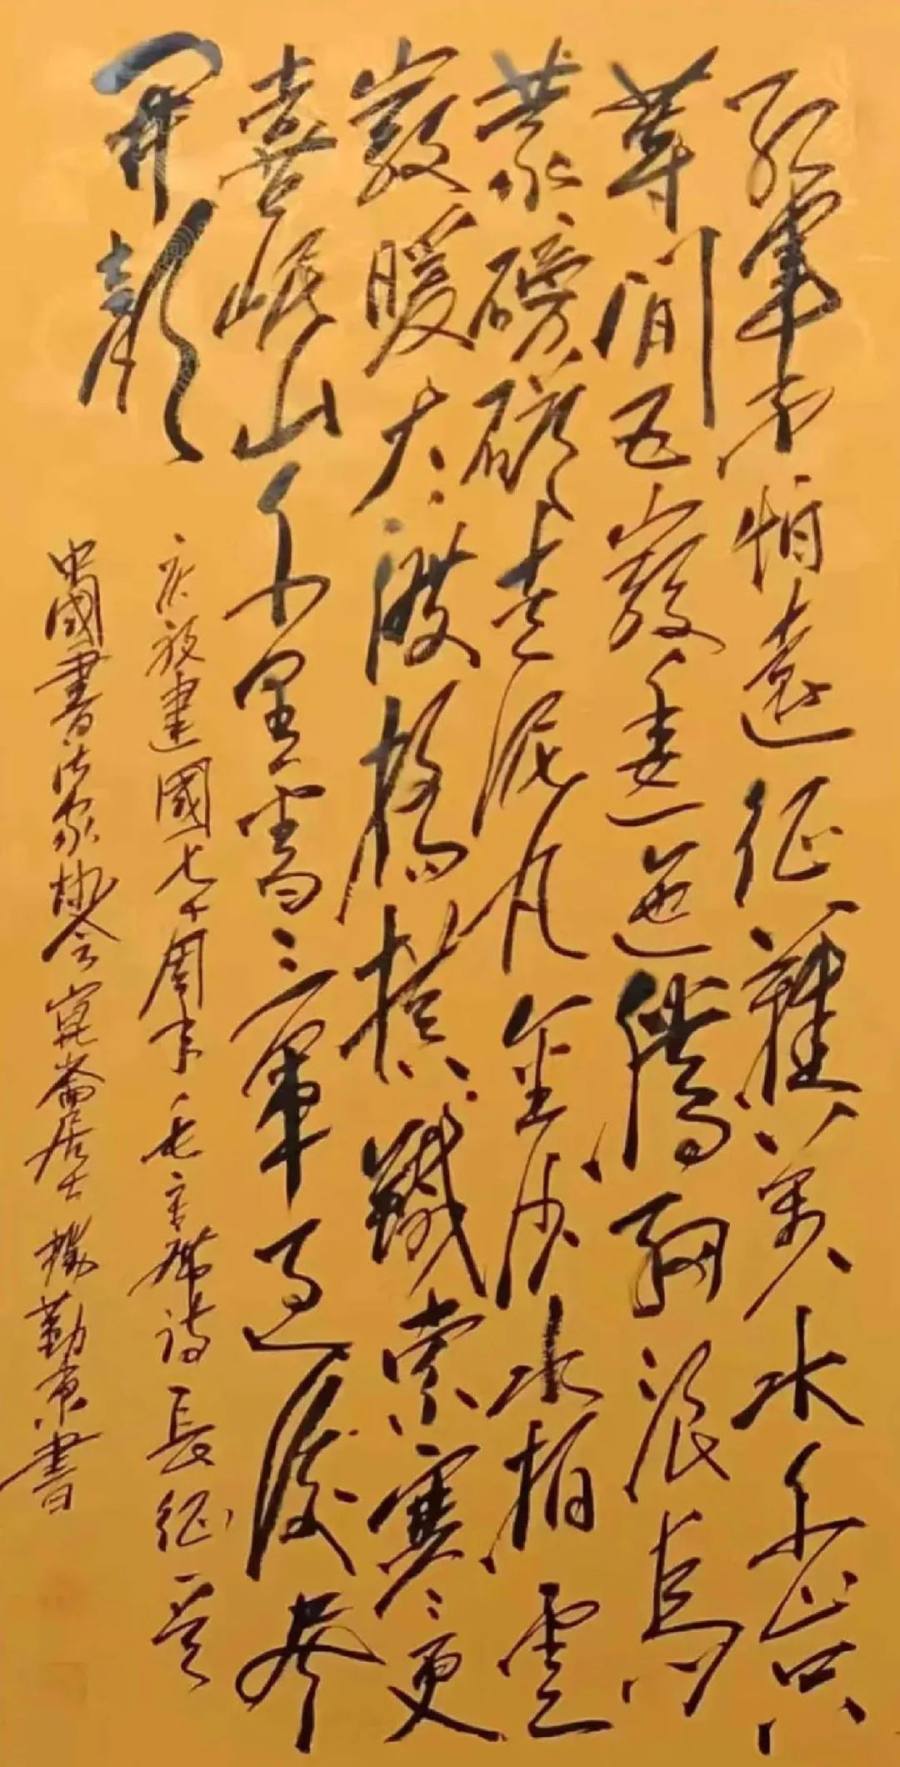 紅軍不怕遠征難萬水千山只
等閒五嶺逶迤騰細浪烏
蒙磅礴走泥丸金沙水拍雲
巖暖大渡橋橫鐵索寒更
喜岷山千里雪三軍過後盡
開顏
慶祝建國七十周年毛主席詩長征一首
中國書法家協會崑崙居士勤書